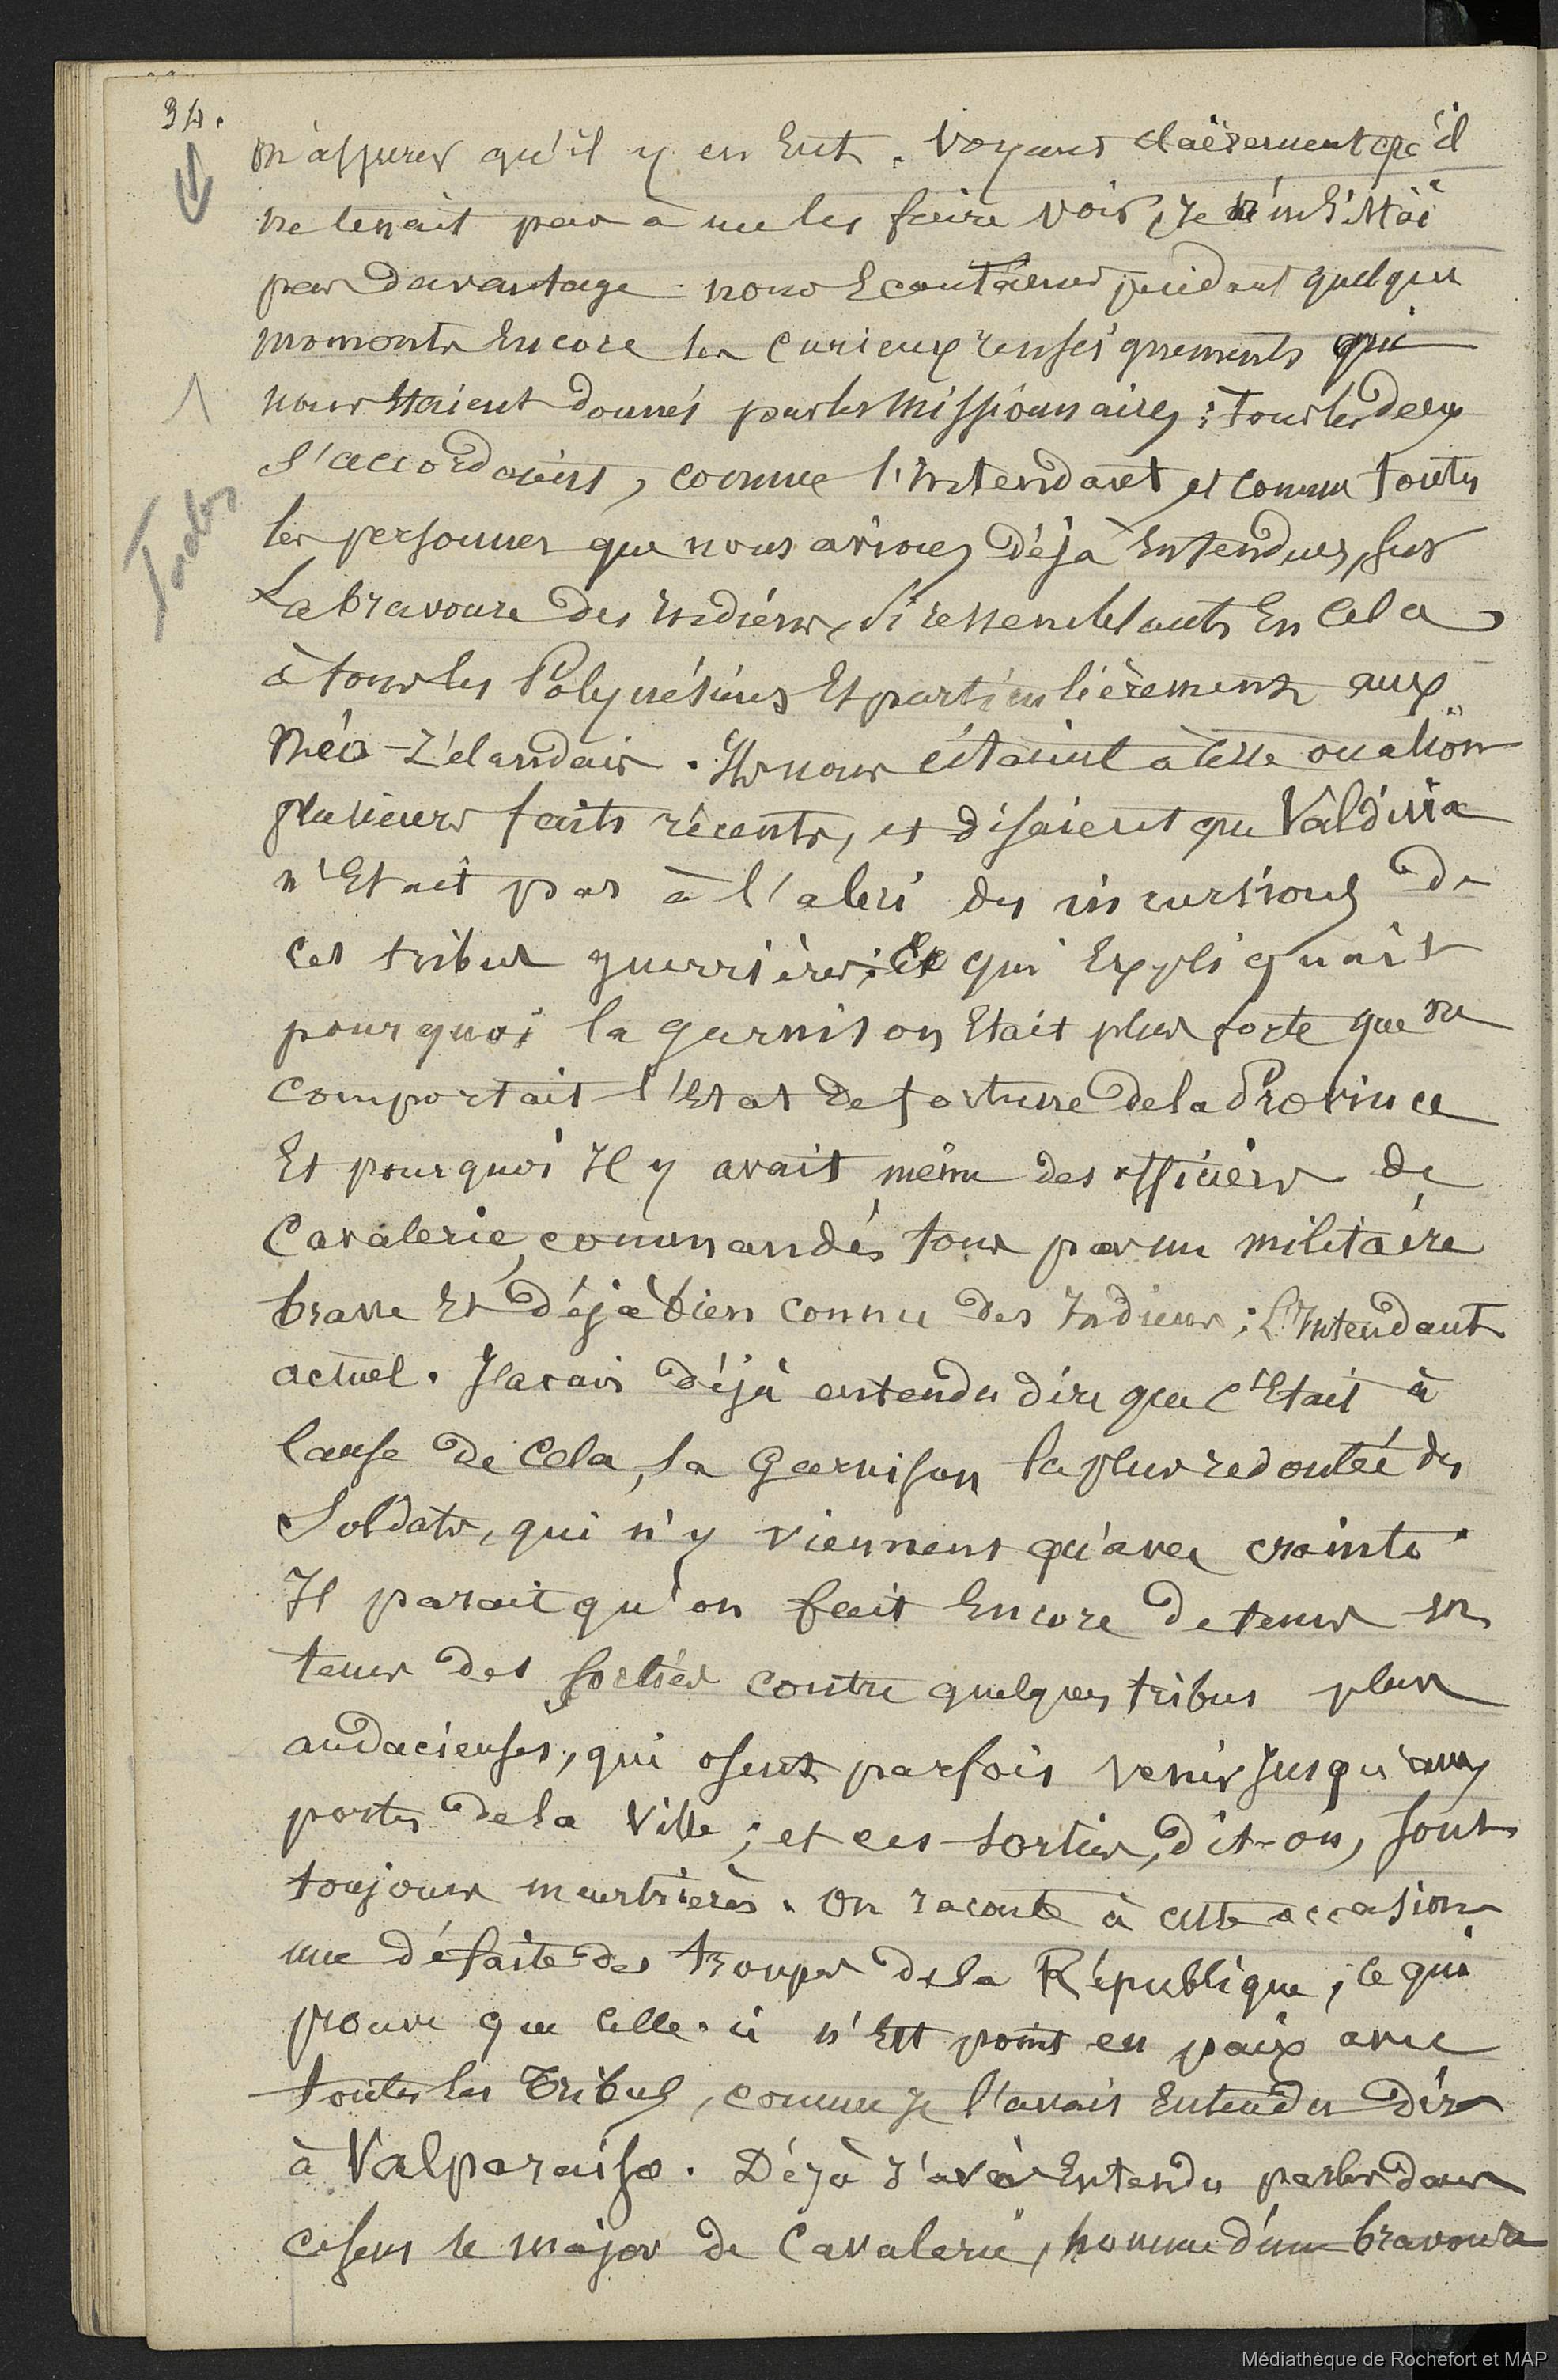 34.
m'assurer qu'il y en Eut. Voyant claierement qu'il
ne tenait pas à me les faire voir, Je n'insistai
pas davantage. nous Ecoutâmes pendant quelques
moments Encore les curieux renseignements qui
nous Etaient donnés par les Missionnaires; Tous les deux
s'accordaient, comme l'intendant et comme toutes
les personnes que nous avions déjà Entendues, sur
La bravoure des indiens, si ressemblants En cela
à tous les Polynésiens Et particulièrement aux
Néo-Zélandais. Ils nous citaient à l'occasion
plusieurs faits récents, et disaient que Valdivia
n'Etait pas à l'abri des incursions de
ces tribus guerrières; Ce qui Expliquait
pourquoi la garnison Etait plus forte que ne
comportait l'Etat de fortune de la Province
Et pourquoi Il y avait même des officiers de
Cavalerie, commandés tous par un militaire
brave Et déjà bien connu des Indiens; L'Intendant
actuel. J'avais déjà entendu dire que c'Etait à
Cause de Cela, la Garnison la plus redoutée des
Soldats, qui n'y viennent qu'avec crainte.
Il parait qu'on fait Encore de tems en
tems des sorties contre quelques tribus plus
audacieuses, qui osent parfois venir Jusqu'aux
portes de la Ville; et ces sorties, dit-on, sont
toujours meurtrières. On raconte à cette occasion
une défaite des troupes de la République, ce qui
prouve que celle-ci n'Est point en paix avec
toutes les Tribus, comme je l'avais Entendu dire
à Valparaiso. Déjà J'avais Entendu parler dans
ce sens le major de Cavalerie, homme d'une bravoure
Médiathèque de Rochefort et MAP